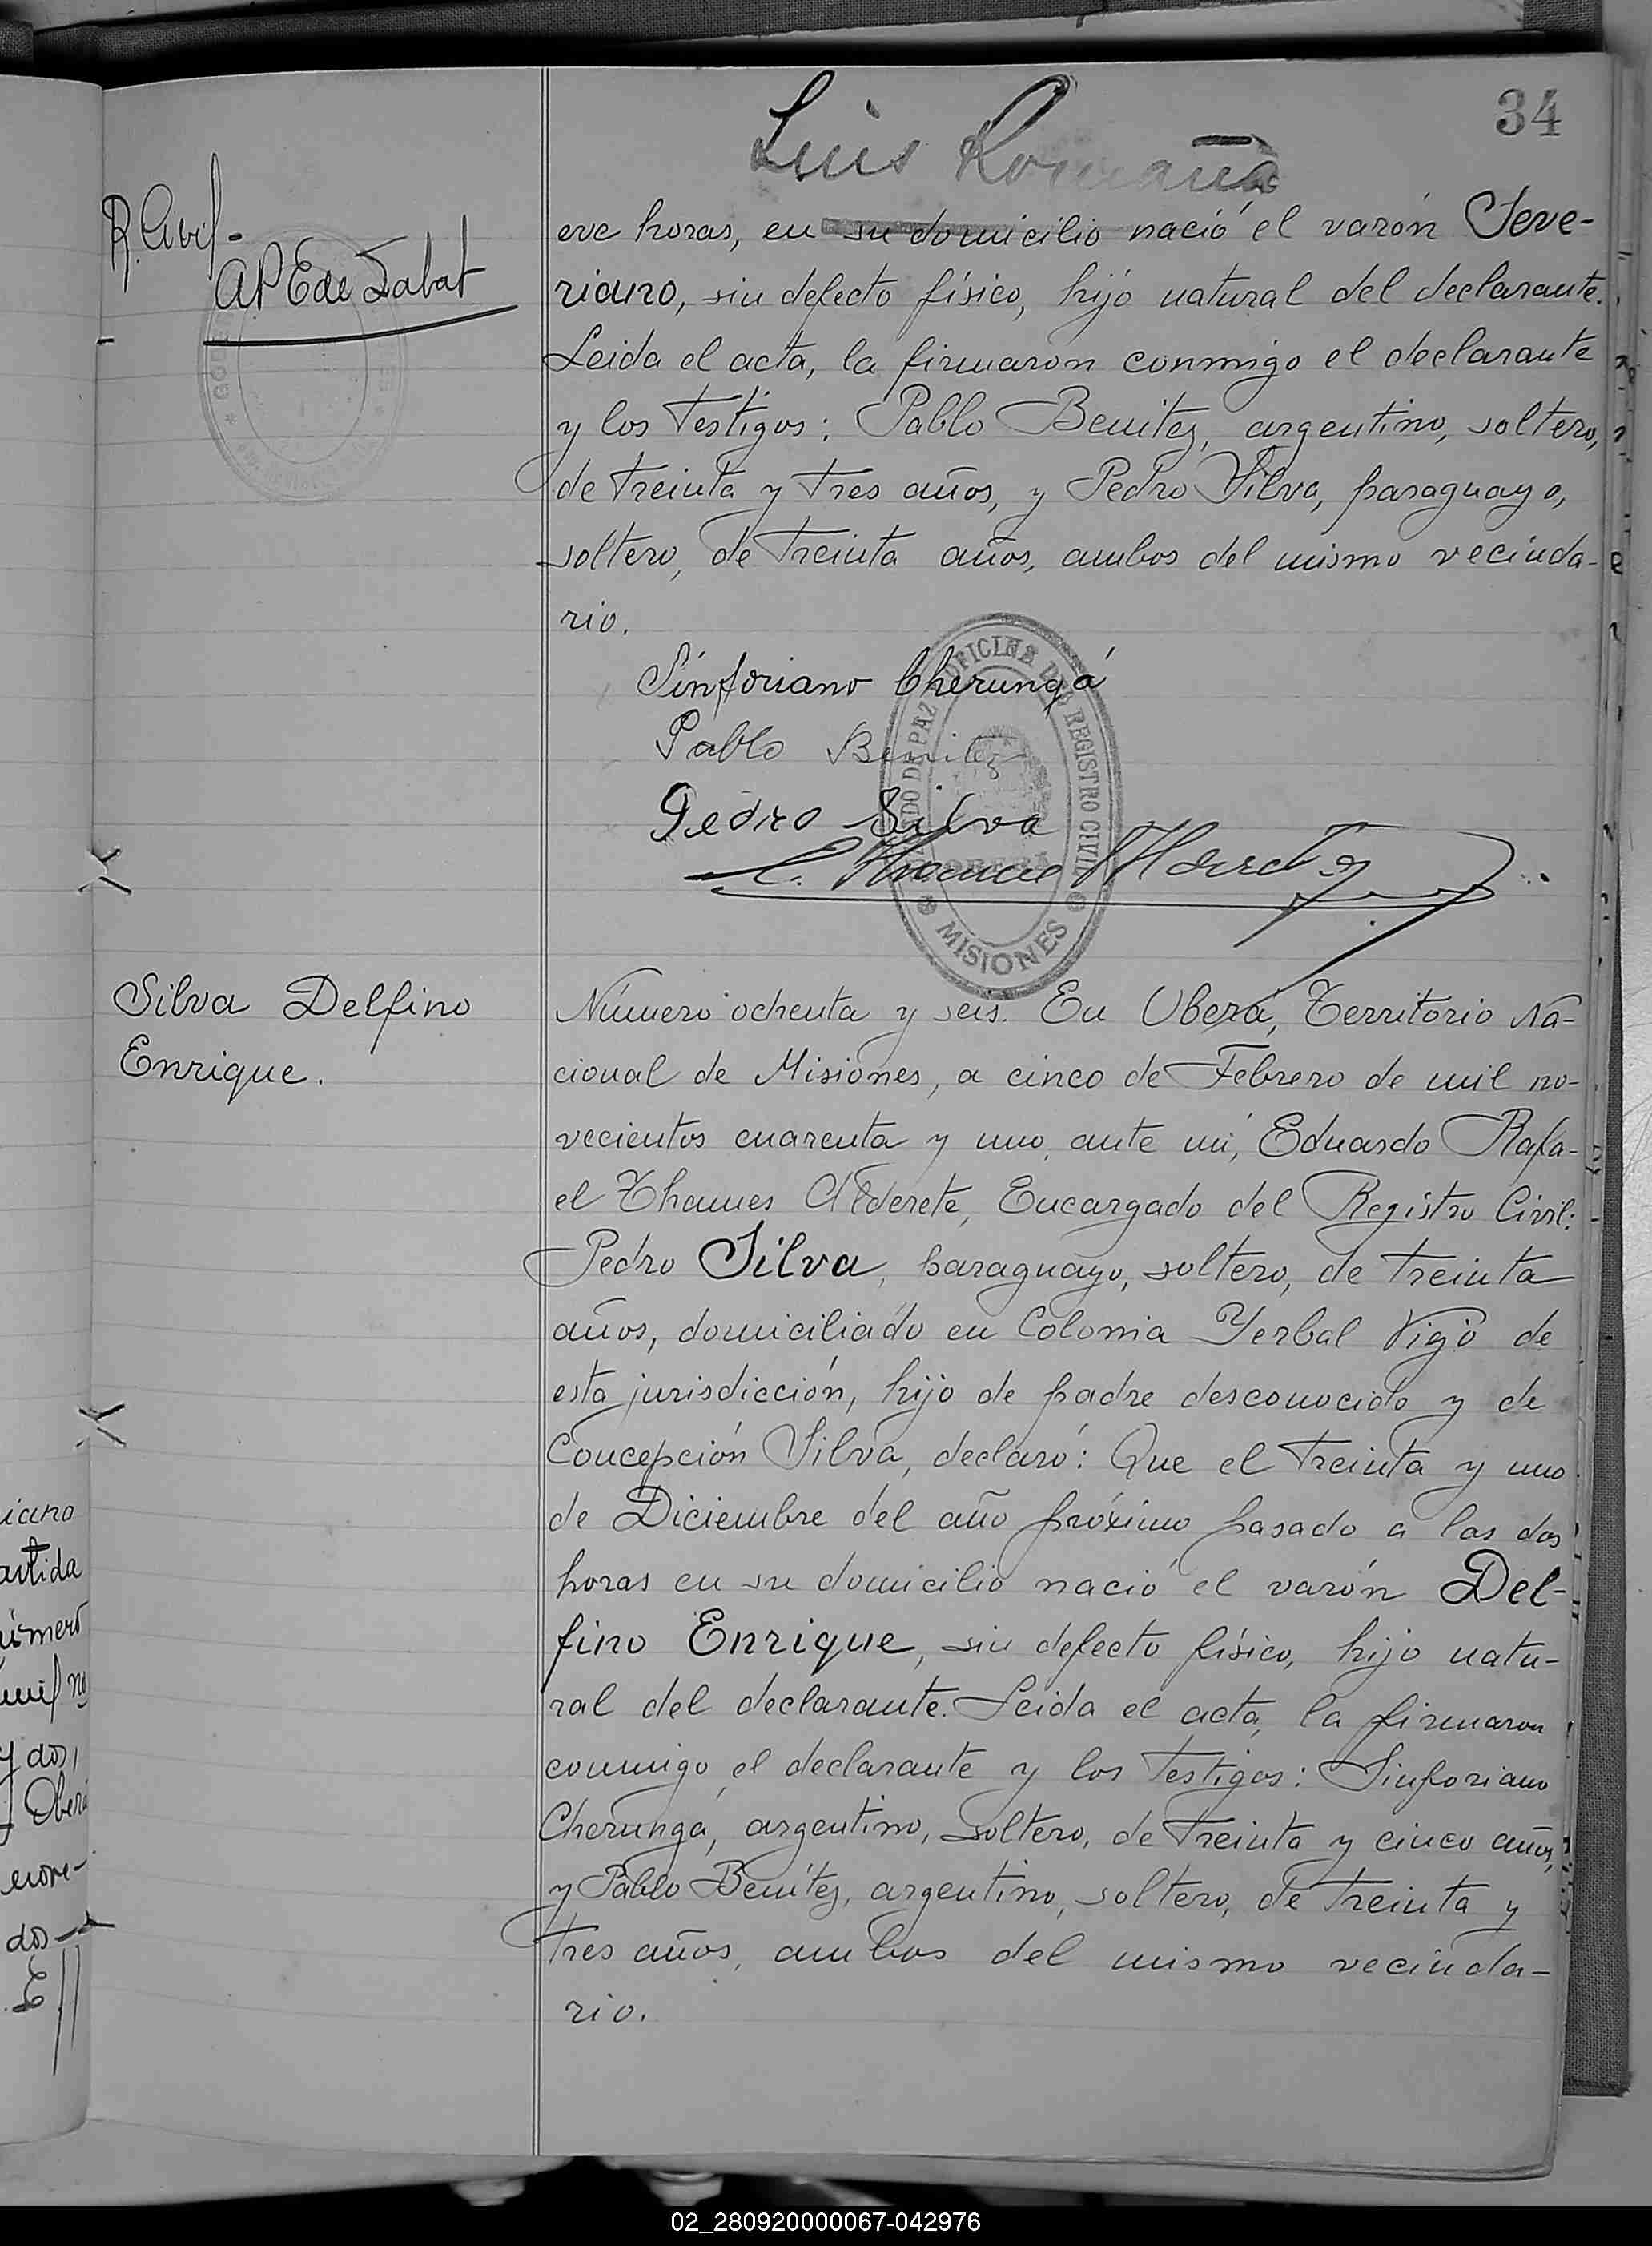 34
Luis Romaña
R. Civil-
APE de Labat
eve horas, en su domicilio nació el varón Seve-
riano, sin defecto físico, hijo natural del declarante.
Leida el acta, la firmaron conmigo el declarante
y los testigos: Pablo Benitez, argentino, soltero,
de treinta y tres años, y Pedro Silva, paraguayo,
soltero, de treinta años, ambos del mismo vecinda-
rio.
Sinforiano Cherungá
Pablo Benitez
Pedro Silva
JUZGADO DE PAZ OFICINA DEL REGISTRO CIVIL
OBERÁ
MISIONES
Silva Delfino
Enrique.
Número ochenta y seis. En Oberá, Territorio Na-
cional de Misiones, a cinco de Febrero de mil no-
vecientos cuarenta y uno, ante mí, Eduardo Rafa-
el Thames Alderete, Encargado del Registro Civil:
Pedro Silva, paraguayo, soltero, de treinta
años, domiciliado en Colonia Yerbal Viejo de
esta jurisdicción, hijo de padre desconocido y de
Concepción Silva, declaró: Que el treinta y uno
de Diciembre del año próximo pasado a las dos
horas en su domicilio nació el varón Del-
fino Enrique, sin defecto físico, hijo natu-
ral del declarante. Leida el acta, la firmaron
conmigo el declarante y los testigos: Sinforiano
Cherungá, argentino, soltero, de treinta y cinco años,
y Pablo Benítez, argentino, soltero, de treinta y
tres años, ambos del mismo vecinda-
rio.
iano
artida
úmero
mil no
y dos,
Oberá
nove-
dos
02_280920000067-042976